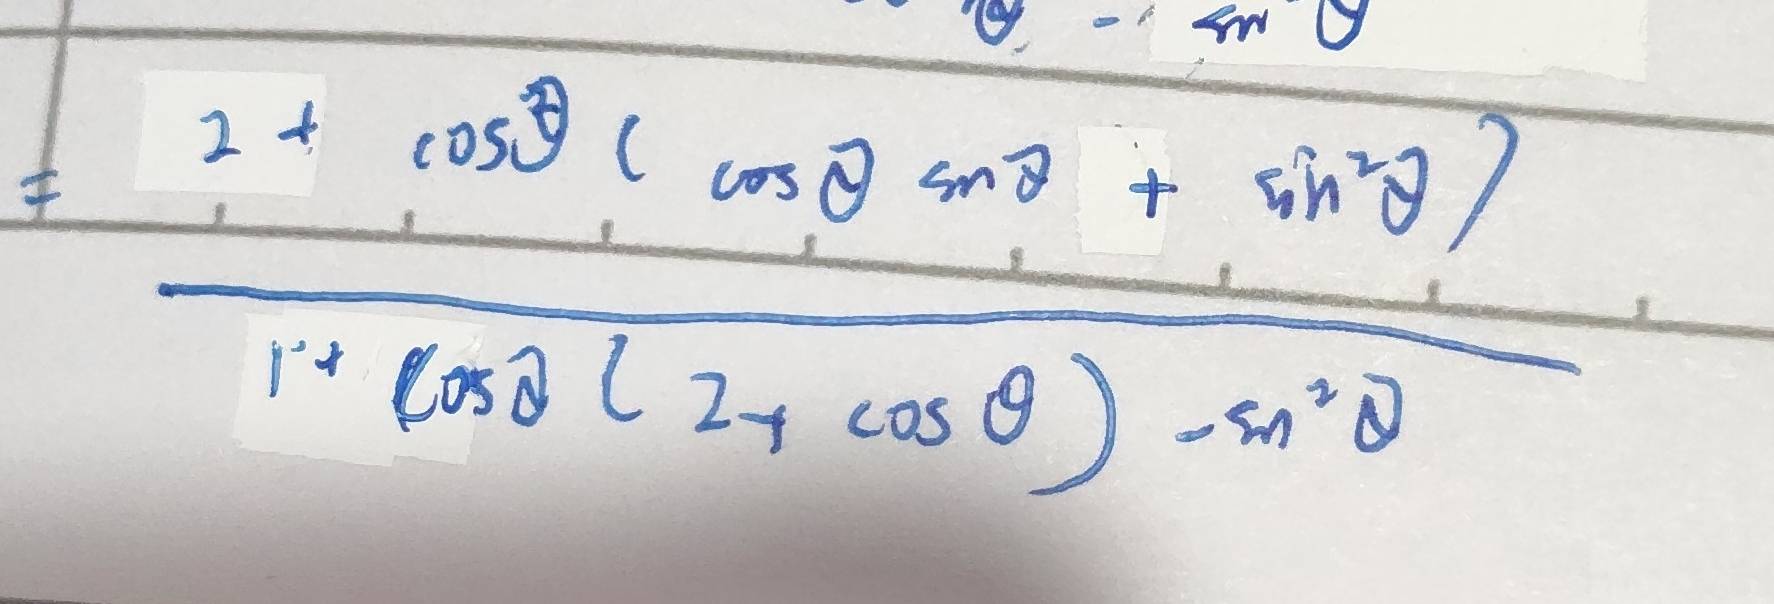 θ - sin²θ
= 2 + cosθ ( cosθ sinθ + sin²θ )
1 + cosθ ( 2 + cosθ ) - sin²θ